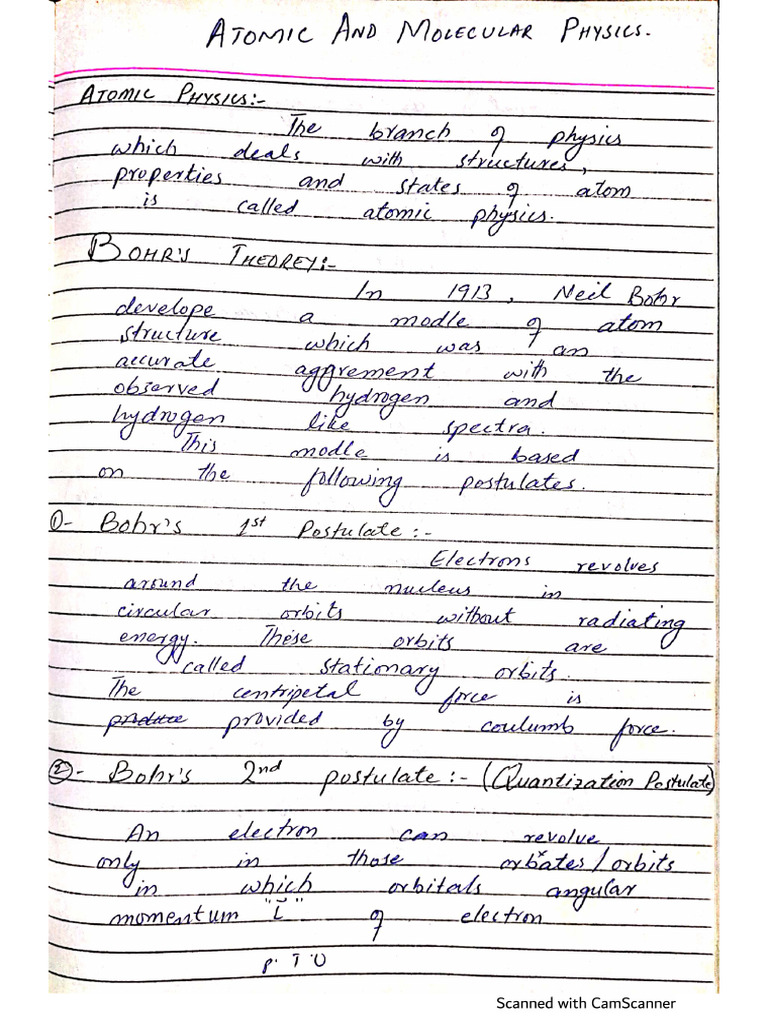 ATOMIC AND MOLECULAR PHYSICS.
ATOMIC PHYSICS:-
The branch of physics
which deals with structures,
properties and states of atom
is called atomic physics.
BOHR'S THEOREY:-
In 1913, Neil Bohr
develope a modle of atom
structure which was an
accurate aggrement with the
observed hydrogen and
hydrogen like spectra.
This modle is based
on the following postulates.
1)- Bohr's 1st Postulate:-
Electrons revolves
around the nucleus in
circular orbits without radiating
energy. These orbits are
called stationary orbits.
The centripetal force is
produce provided by coulumb force.
2)- Bohr's 2nd postulate:- (Quantization Postulate)
An electron can revolve
only in those orbates/orbits
in which orbitals angular
momentum "L" of electron
P.T.O
Scanned with CamScanner